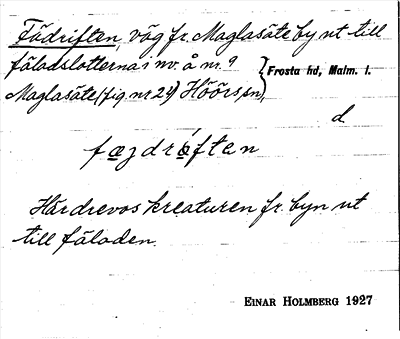 Fädriften, väg fr. Maglasäte by ut till
fäladslotterna i nv. å nr. 9
Maglasäte (fig nr 24) Höörs sn, } Frosta hd, Malm. l.
d.
fæzdrifften
Här drevos kreaturen fr. byn ut
till fäladen.
EINAR HOLMBERG 1927